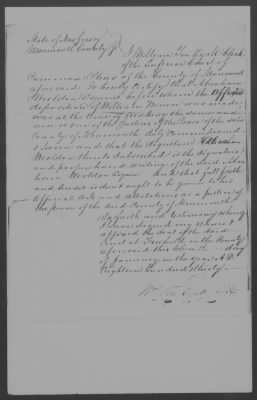 State of New Jersey
Monmouth County } I William Ten Eyck Clerk
of the Inferior Court of
Common Pleas of the County of Monmouth
aforesaid do hereby Certify that Abraham
Woolston Esquire before whom the Affixed
deposition of William Brown was made,
was at the time of making the same and
now is one of the Judges of the Peace of the said
County of Monmouth duly Commissioned
& sworn and that the signature Abraham
Woolston thereto Subscribed is the signature
and proper hand writing of the said Abra
ham Woolston Esquire And that full faith
and Credit is due & ought to be given to his
Official Acts and Attestations as a Justice of
the peace of the said County of Monmouth
In faith and testimony whereof
I have signed my name &
affixed the Seal of the said
Court at Freehold in the County
aforesaid this day
of January in the year A.D.
Eighteen hundred & thirty
Wm Ten Eyck Clk